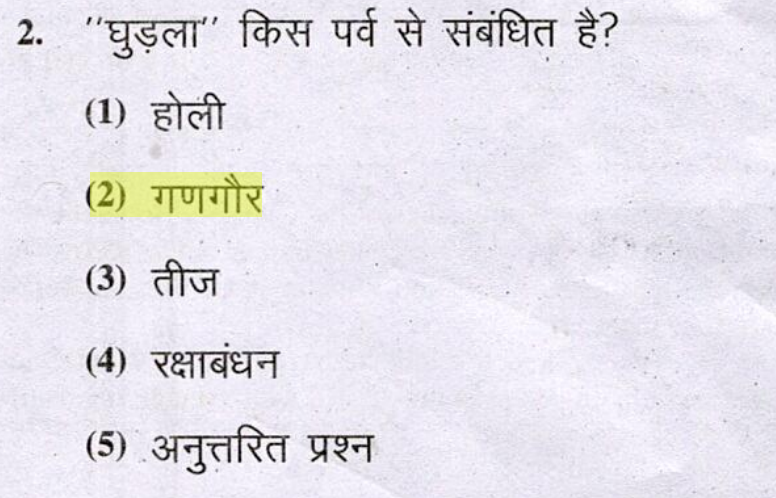 2. ''घुड़ला'' किस पर्व से संबंधित है?
(1) होली
(2) गणगौर
(3) तीज
(4) रक्षाबंधन
(5) अनुत्तरित प्रश्न